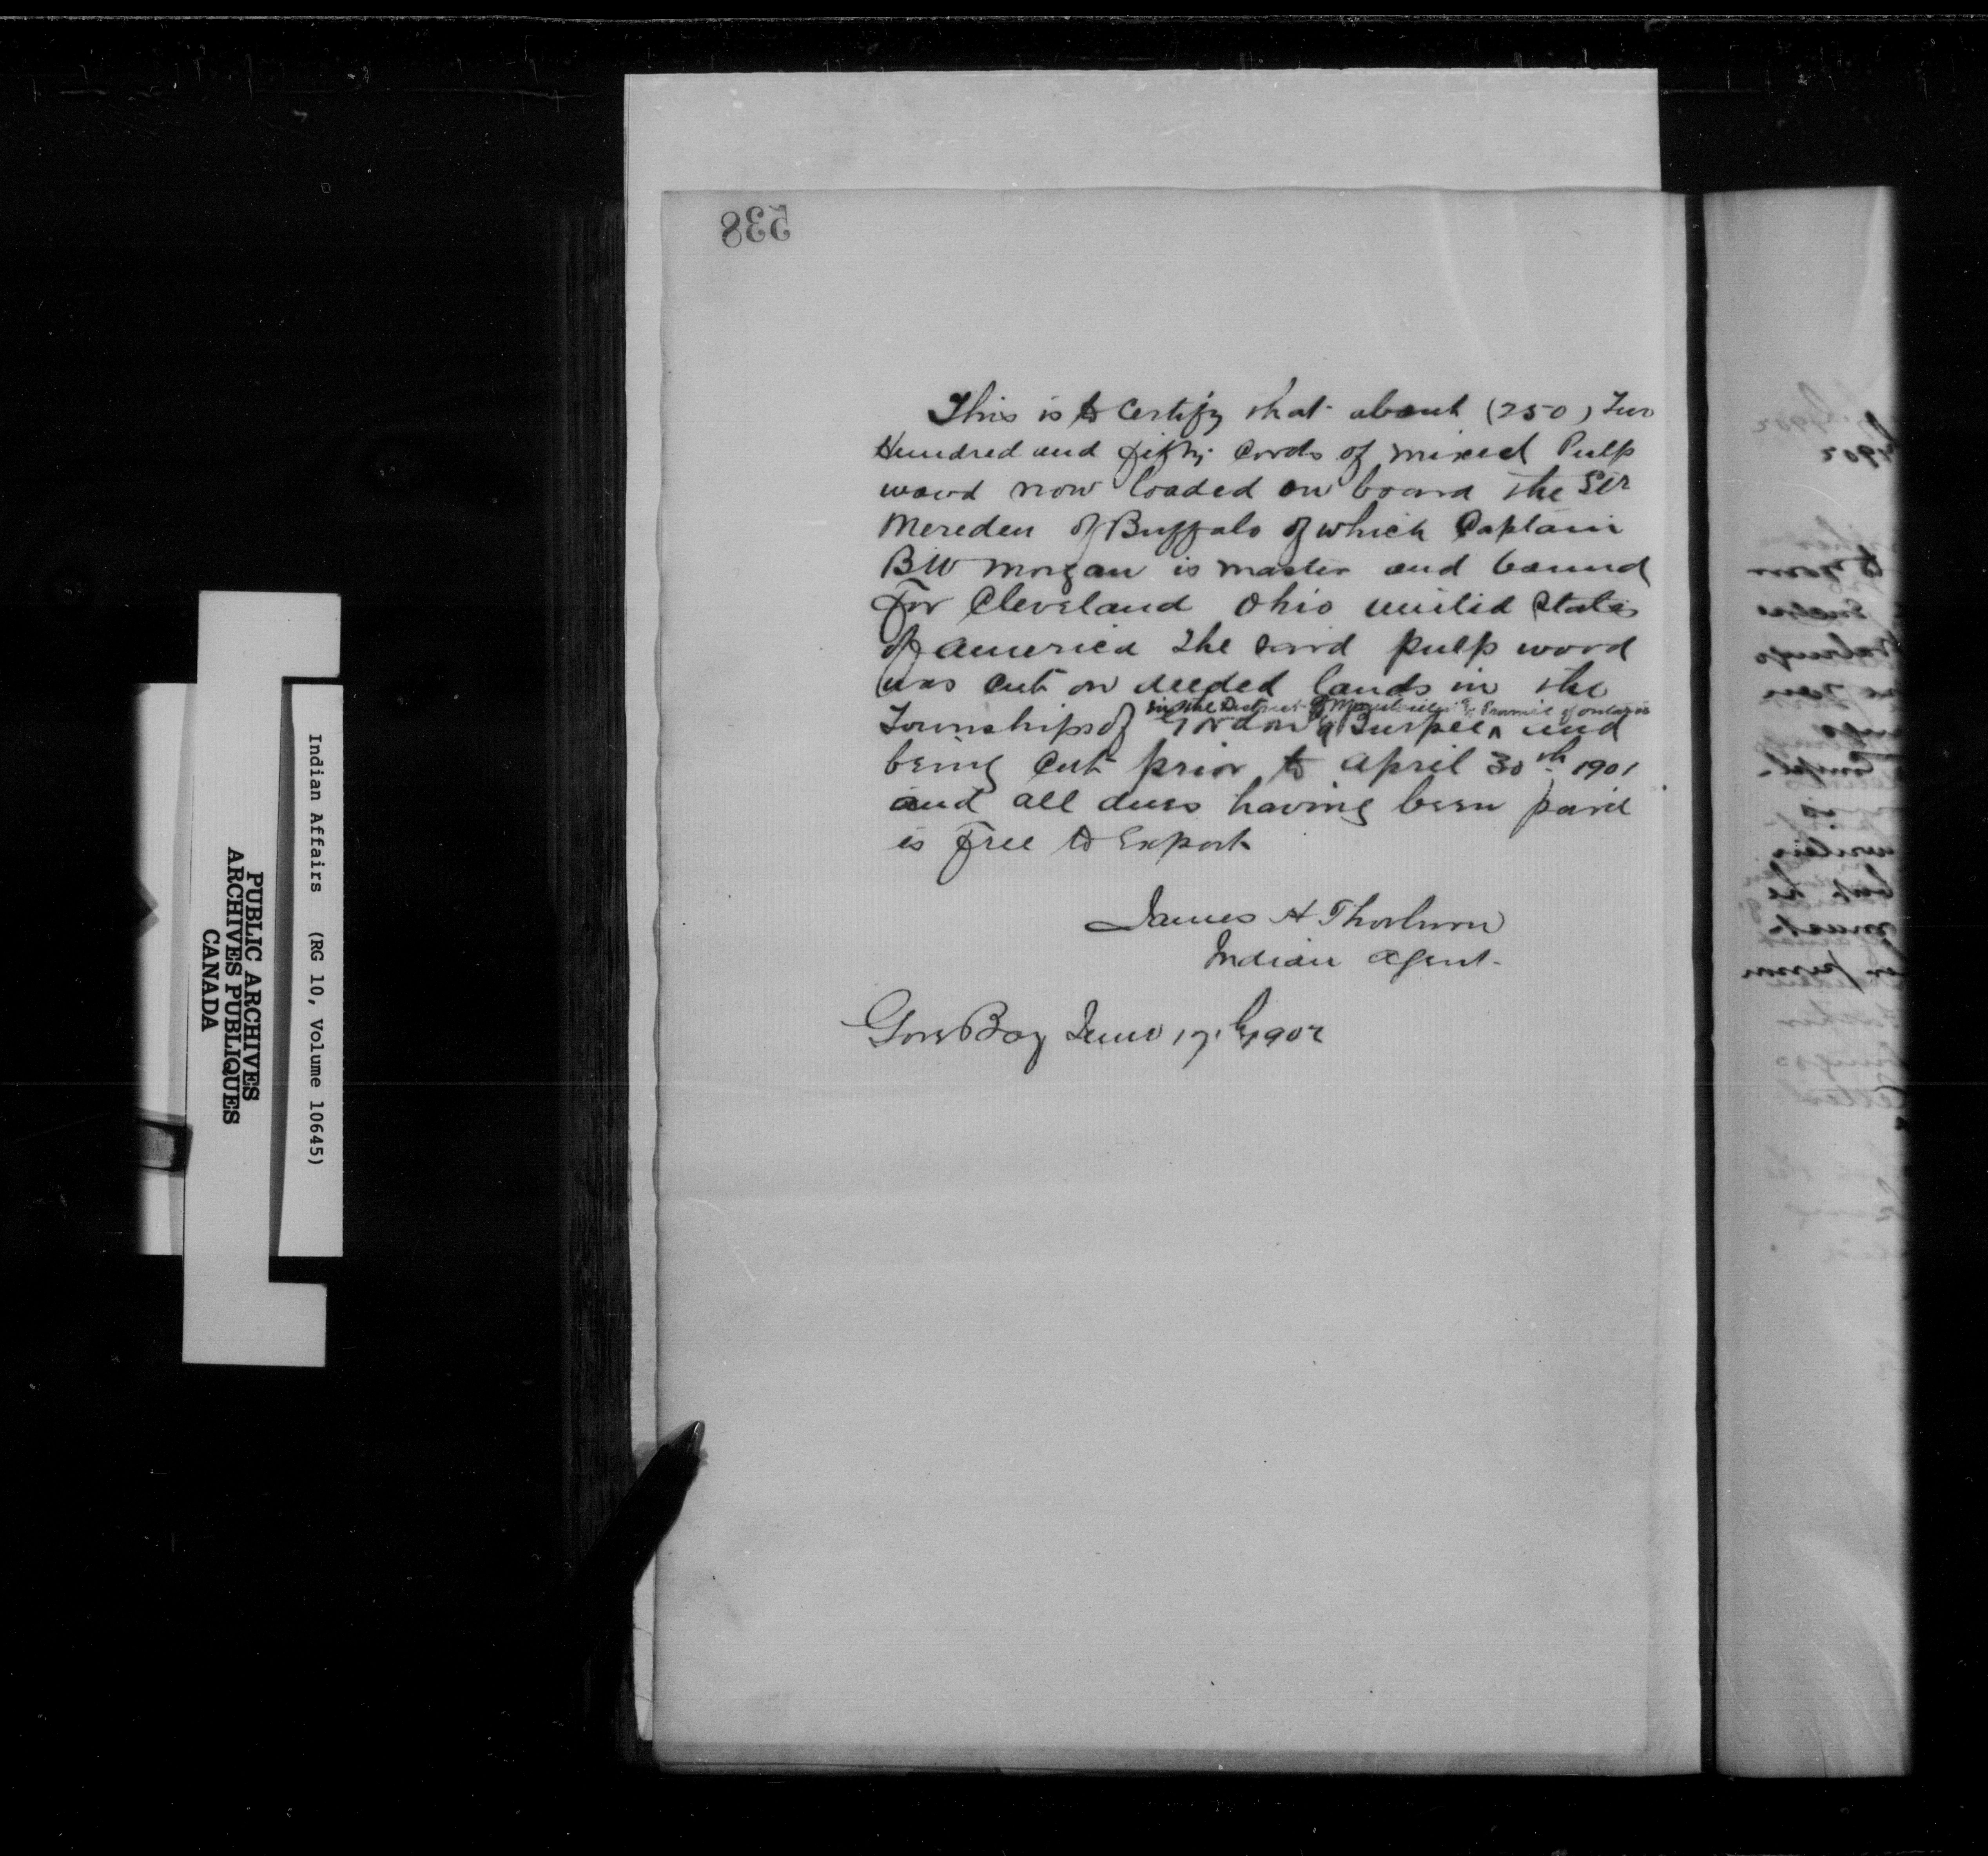 538
This is to Certify that about (250) Two
Hundred and fifty Cords of mixed Pulp
wood now loaded on board the Str
Mereden of Buffalo of which Captain
B W Morgan is master and bound
For Cleveland Ohio united States
of America The said pulp wood
was cut on deeded lands in the
in the District of Manitoulin & Province of Ontario
Townships of Gordon & Burpee ^ and
being cut prior to April 30th 1901
and all dues having been paid
is Free to Export
James H Thorburn
Indian Agent.
Gore Bay June 17th 1902
Indian Affairs (RG 10, Volume 10645)
PUBLIC ARCHIVES
ARCHIVES PUBLIQUES
CANADA